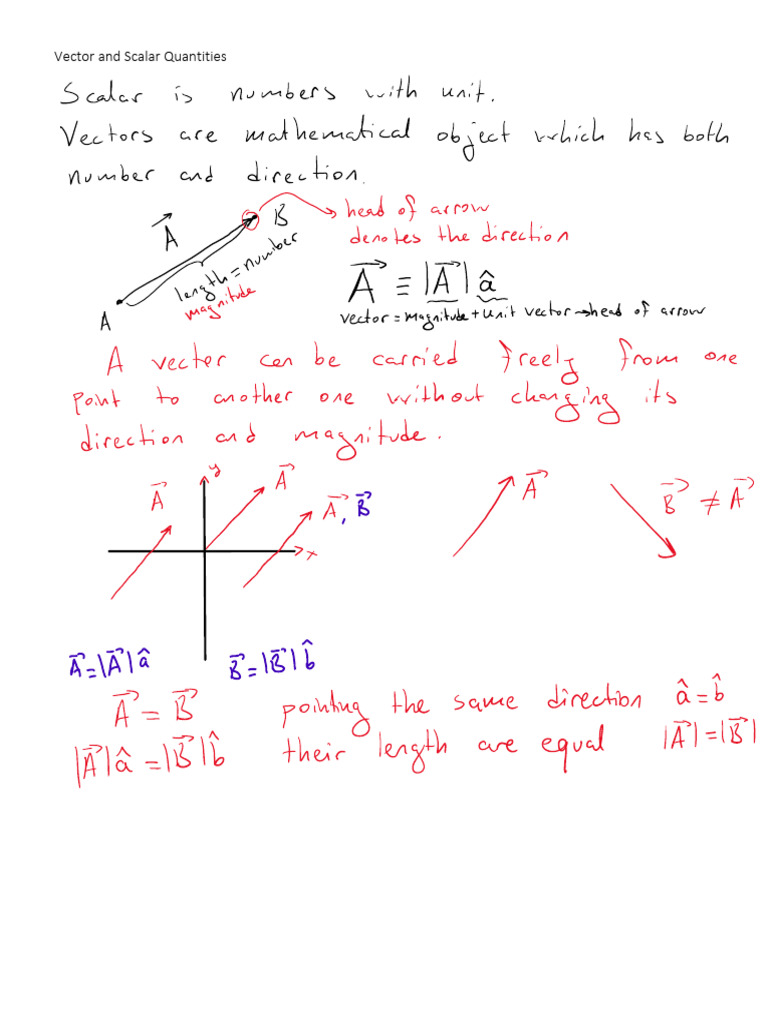 Vector and Scalar Quantities
Scalar is numbers with unit.
Vectors are mathematical object which has both
number and direction.
A⃗
B
head of arrow
denotes the direction
length = number
magnitude
A
A⃗ ≡ |A⃗| â
vector = magnitude + unit vector → head of arrow
A vector can be carried freely from one
point to another one without changing its
direction and magnitude.
y
A⃗
A⃗
A⃗, B⃗
x
A⃗
B⃗ ≠ A⃗
A⃗ = |A⃗| â
B⃗ = |B⃗| b̂
A⃗ = B⃗ pointing the same direction â = b̂
|A⃗| â = |B⃗| b̂ their length are equal |A⃗| = |B⃗|